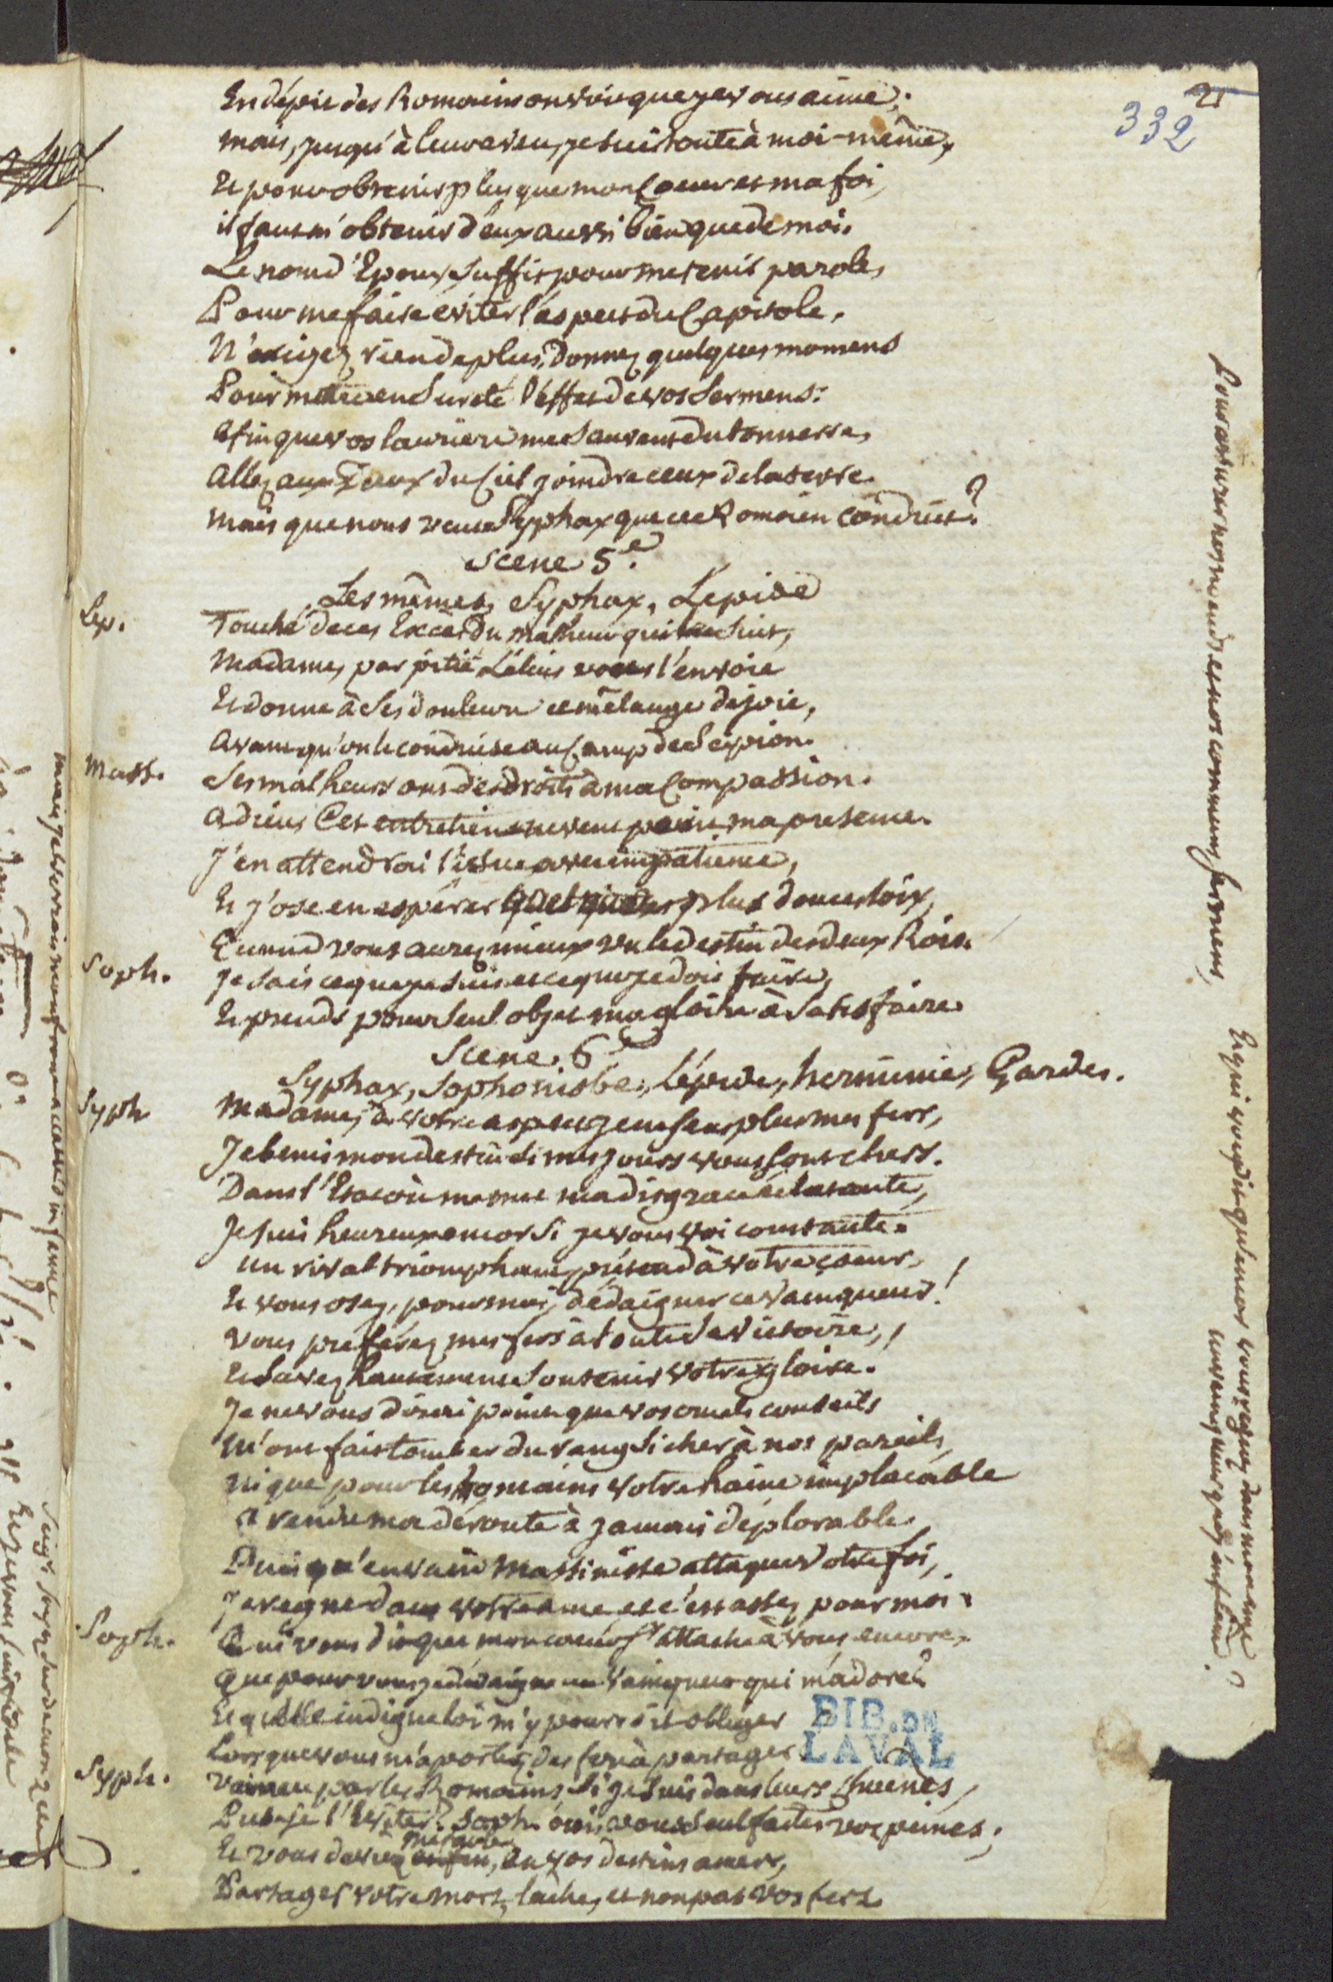 21
332
En dépit des Romains on voit que je vous aime;
mais, jusqu'à leur aveu, je suis toute à moi-même,
Et pour obtenir plus que mon coeur et ma foi,
il faut m'obtenir d'eux aussi bien que de moi.
Le nom d'Epoux suffit pour me tenir parole,
Pour me faire éviter l'aspect du Capitole.
N'exigez rien de plus, donnez quelques momens
Pour mettre en sureté l'effet de vos sermens:
Afin que vos lauriers me sauvent du tonnerre,
allez aux Dieux du Ciel joindre ceux de la terre.
mais que nous veut Syphax que ce Romain conduit?
Scene 5.e
Les mêmes, Syphax, Lepide
Lep. Touché de cet Excès du malheur qui le suit,
Madame, par pitié Lélius vous l'envoie
Et donne à ses douleurs ce mêlange de joie,
avant qu'on le conduise au Camp de Scipion.
Mass. Ses malheurs ont des droits à ma Compassion.
adieu; Cet entretien ne veut point ma presence.
J'en attendrai l'issue avec impatience,
Et j'ose en espérer plus douces loix,
Quand vous aurez mieux vu le destin des deux Rois.
Soph. Je sais ce que je suis et ce que je dois faire,
Et prends pour seul objet ma gloire à satisfaire.
Scene. 6.e
Syphax, Sophonisbe, Lépide, herminie, Gardes.
Syph. Madame, à votre aspect je ne sens plus mes fers,
Je benis mon destin si mes jours vous sont chers.
Dans l'Etat où m'a mis ma disgrace éclatante,
Je suis heureux encor si je vous voi constante.
un rival triomphant prétend à votre coeur,
Et vous osez, pour moi, dédaigner ce vainqueur!
vous preférez mes fers à toute sa victoire,
Et savez hautement soutenir votre gloire.
Je ne vous dirai point que vos cruels conseils
M'ont fait tomber du rang si cher à nos pareils,
ni que pour les Romains votre haine implacable
a rendu ma déroute à jamais déplorable.
Puisqu'en vain Massinisse attaque votre foi,
Je regne dans votre ame et c'est assez pour moi.
Soph. Qui vous dit que mon coeur s'attache à vous encore,
Que pour vous je dédaigne un vainqueur qui m'adore?
Et quelle indigne loi m'y pourroit obliger
Lorsque vous m'aportez des fers à partager
Syph. Vaincu par les Romains si je suis dans leurs chaines,
Puis-je l'éviter? Soph. oui, vous seul faites vos peines;
mourir
Et vous deviez enfin, en vos destins amers,
Partager votre mort, lâche, et non pas vos fers.
Pour assurer nos noeuds et nos communs sermens,
Et qui vous dit qu'encor vous regnez dans mon ame?
BIB. DN
LAVAL